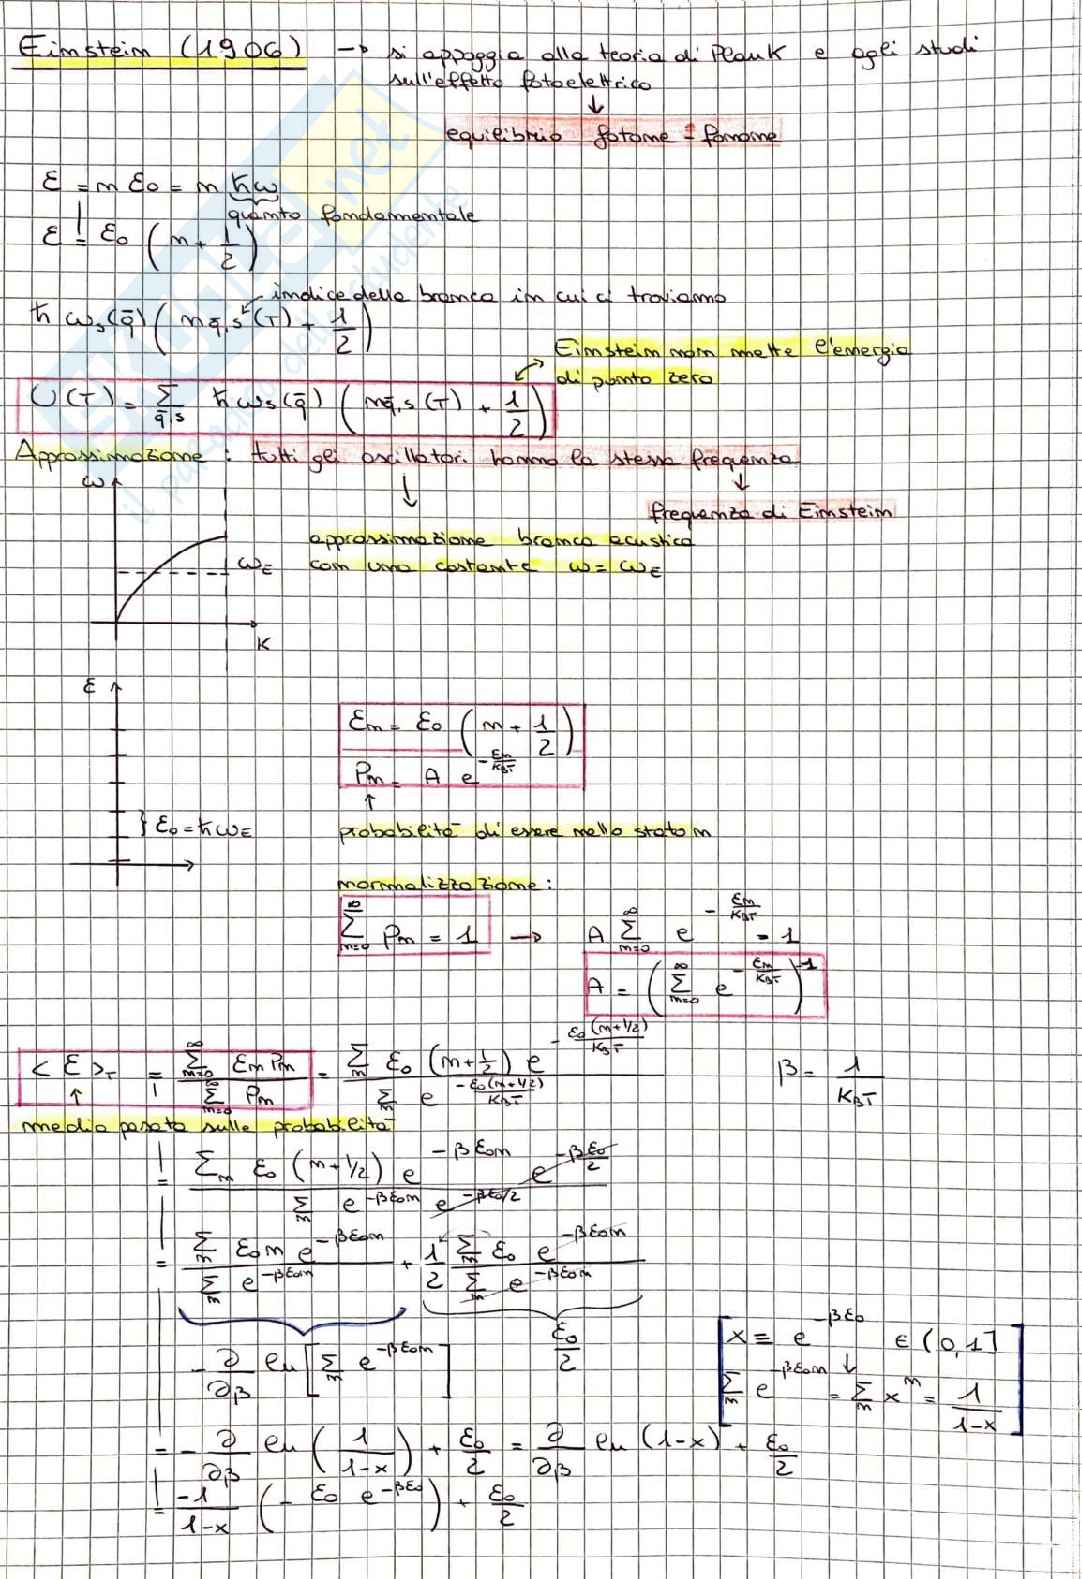 Einstein (1906) → si appoggia alla teoria di Plank e agli studi
sull'effetto fotoelettrico
↓
equilibrio fotone = fonone
ε = n ε₀ = n ħω
quanto fondamentale
ε = ε₀ (n + 1/2)
indice della branca in cui ci troviamo
ħ ωs(q̄) (n q̄,s (T) + 1/2)
Einstein non mette l'energia
di punto zero
U(T) = Σ q̄,s ħ ωs(q̄) (n q̄,s (T) + 1/2)
Approssimazione : tutti gli oscillatori hanno la stessa frequenza
↓ ↓
frequenza di Einstein
ω
approssimazione branca acustica
con una costante ω = ωE
ωE
K
ε
εn = ε₀ (n + 1/2)
Pn = A e^(-εn/KBT)
↑
} ε₀ = ħ ωE
probabilità di essere nello stato n
normalizzazione :
Σ n=0 ∞ Pn = 1 → A Σ n=0 ∞ e^(-εn/KBT) = 1
A = (Σ n=0 ∞ e^(-εn/KBT))^-1
< ε >T = Σ n=0 ∞ εn Pn / Σ n=0 ∞ Pn = Σn ε₀ (n + 1/2) e^(-ε₀(n+1/2)/KBT) / Σn e^(-ε₀(n+1/2)/KBT) β = 1/KBT
↑
media pesata sulle probabilità
= Σn ε₀ (n + 1/2) e^(-βε₀n) e^(-βε₀/2) / Σn e^(-βε₀n) e^(-βε₀/2)
= Σn ε₀n e^(-βε₀n) / Σn e^(-βε₀n) + 1/2 Σn ε₀ e^(-βε₀n) / Σn e^(-βε₀n)
- ∂/∂β ln [Σn e^(-βε₀n)] ε₀/2
x = e^(-βε₀) ∈ (0,1]
Σn e^(-βε₀n) = Σn x^n = 1/(1-x)
= - ∂/∂β ln (1/(1-x)) + ε₀/2 = ∂/∂β ln (1-x) + ε₀/2
= -1/(1-x) (- ε₀ e^(-βε₀)) + ε₀/2